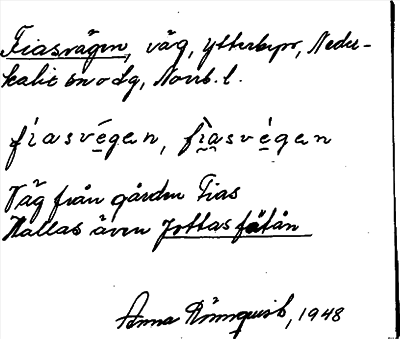 Fiasvägen, väg, ytterbyn, Neder-
kalix snvdg, Norrb. l.
fíasvégen, fìasvégen
Väg från gården Fias
Kallas även Jottasfåtån
Anna Rönnquist, 1948